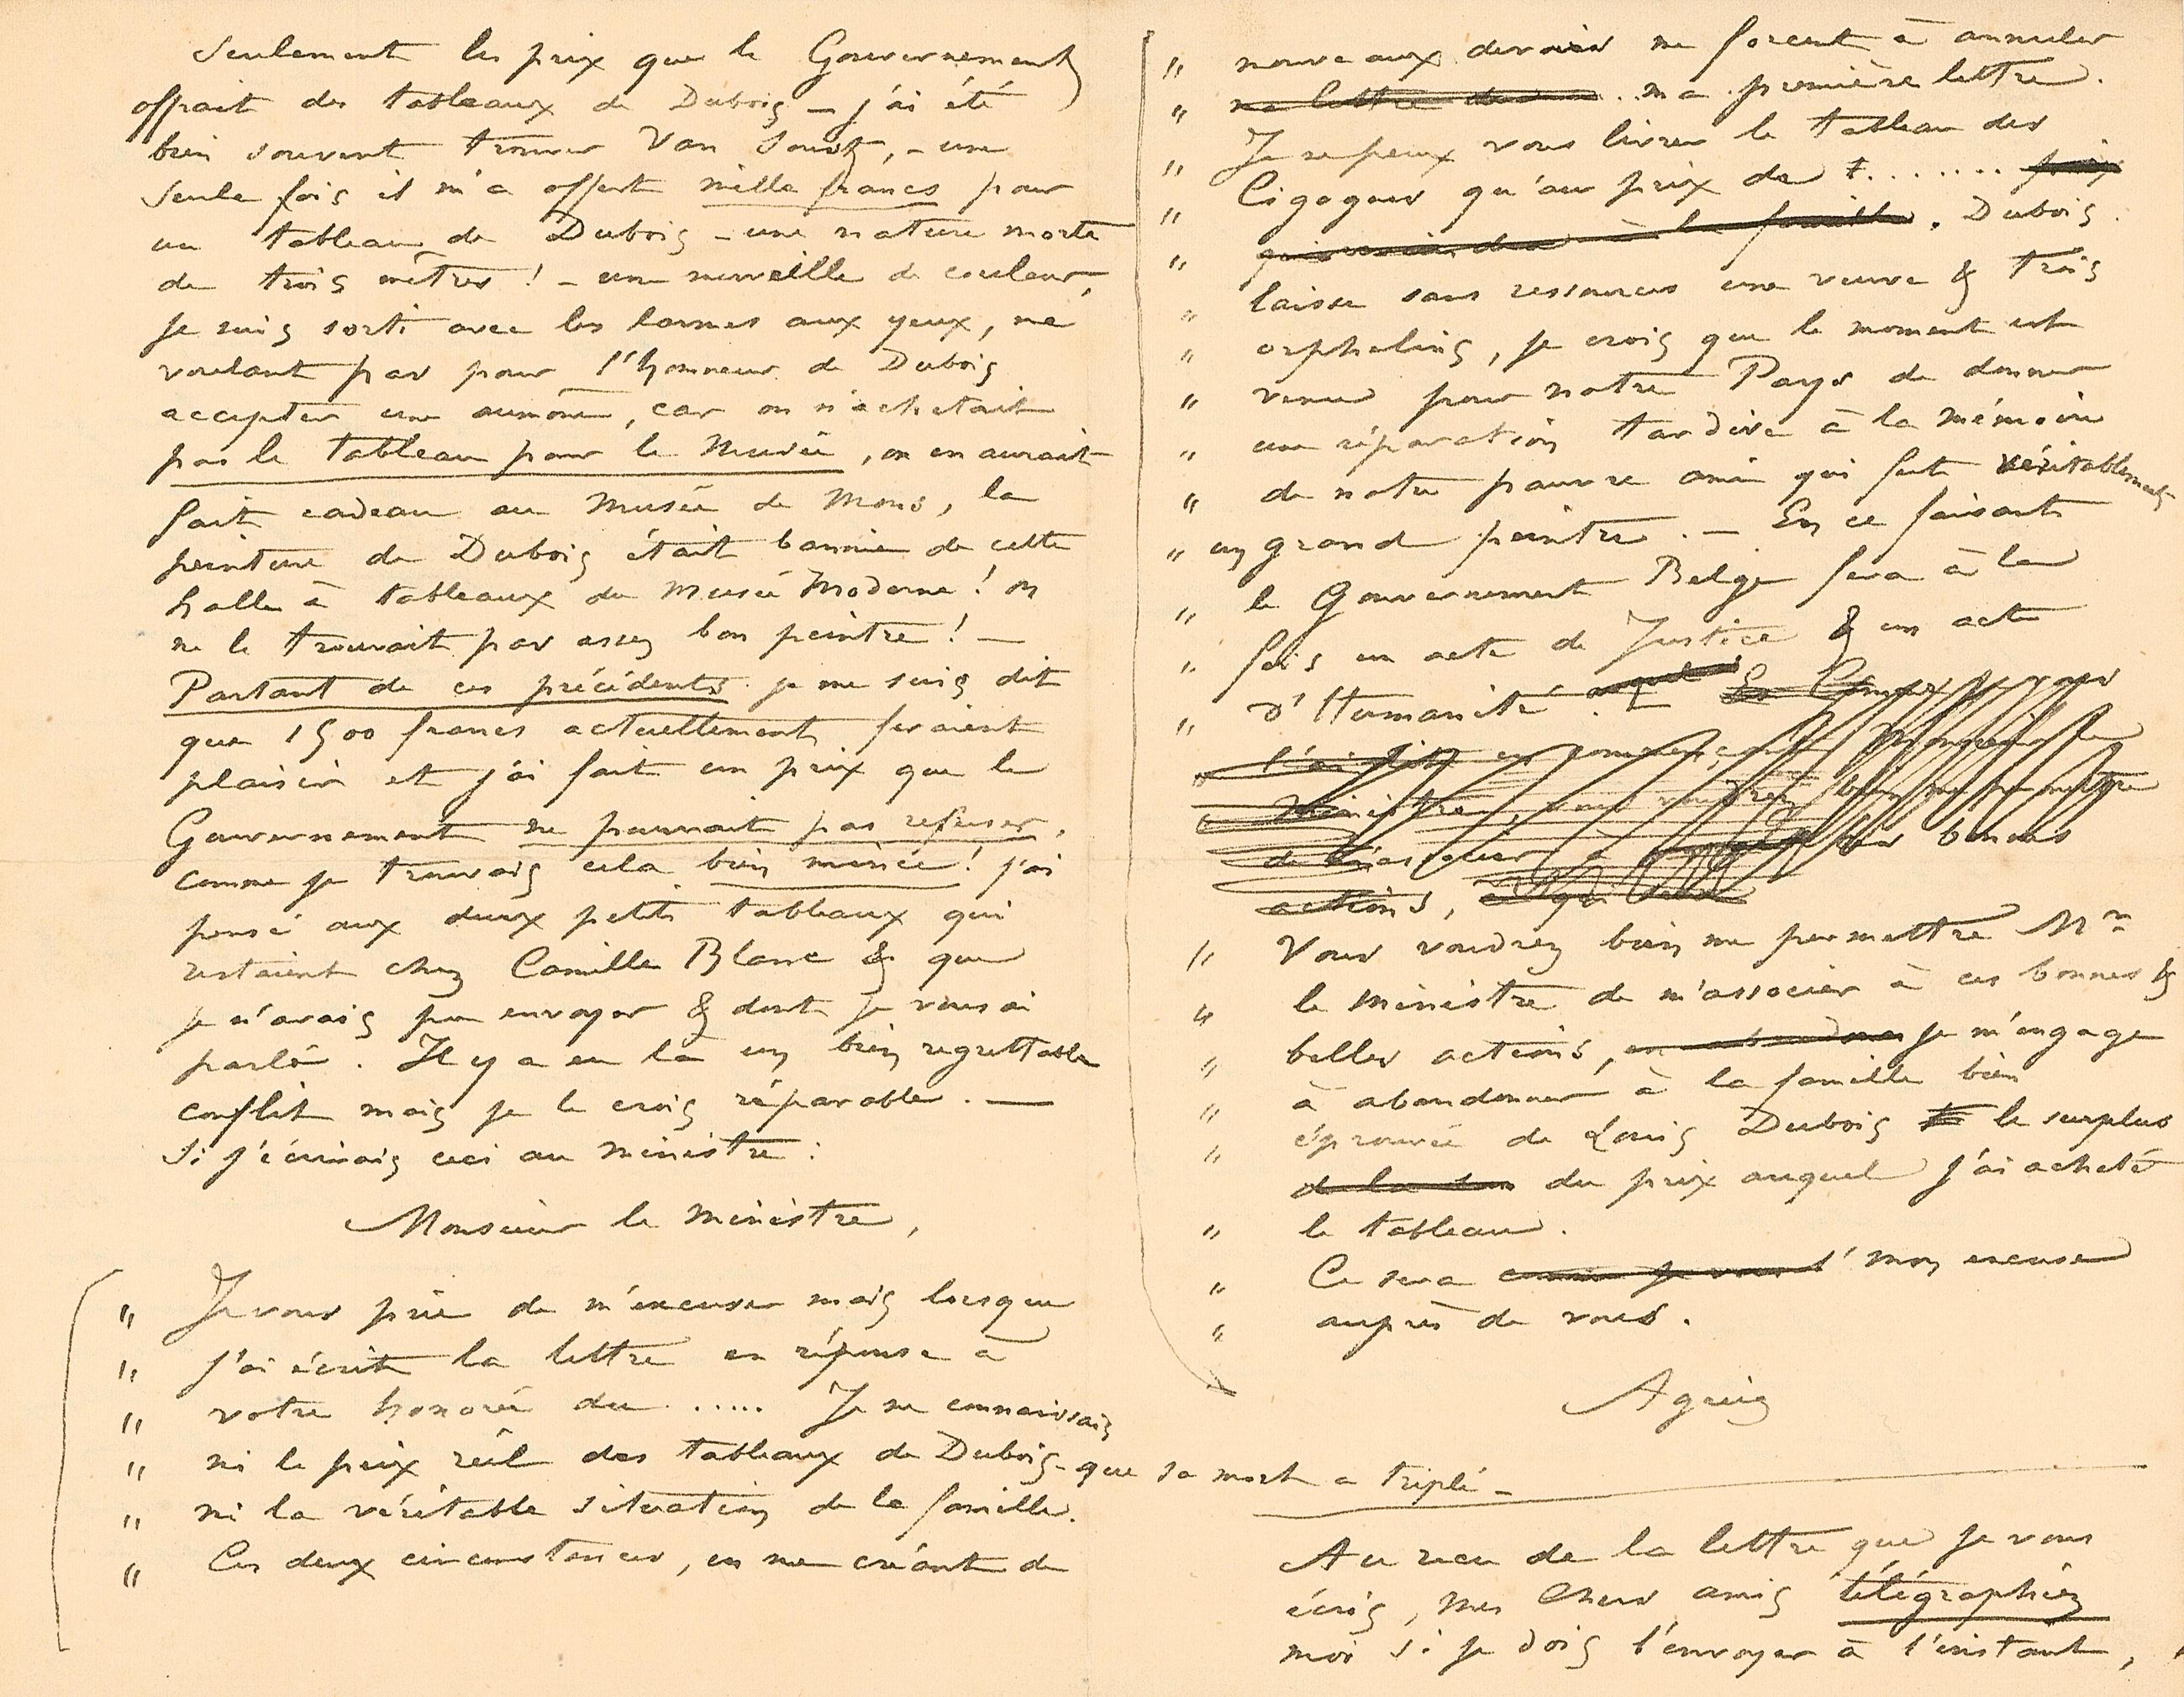 Seulement les prix que le Gouvernement
offrait des tableaux de Dubois – j'ai été
bien souvent trouver Van Soust, – une
seule fois il m'a offert mille francs pour
un tableau de Dubois – une nature morte
de trois mètres ! – une merveille de couleur,
je suis sorti avec les larmes aux yeux, ne
voulant pas pour l'honneur de Dubois
accepter une aumône, car on n'achetait
pas le tableau pour le Musée, on en aurait
fait cadeau au Musée de Mons, la
peinture de Dubois était bannie de cette
halle à tableaux du Musée Moderne ! on
ne le trouvait pas assez bon peintre ! –
Partant de ces précédents je me suis dit
que 1500 francs actuellement feraient
plaisir et j'ai fait un prix que le
Gouvernement ne pourrait pas refuser,
comme je trouvais cela bien mince ! j'ai
pensé aux deux petits tableaux qui
restaient chez Camille Blanc & que
je n'avais pu envoyer & dont je vous ai
parlé. Il y a eu là un bien regrettable
conflit mais je le crois réparable. —
Si j'écrivais ceci au ministre :
Monsieur le Ministre,
" Je vous prie de m'excuser mais lorsque
" j'ai écrit la lettre en réponse à
" votre honorée du ..... Je ne connaissais
" ni le prix réel des tableaux de Dubois – que sa mort a triplé –
" ni la véritable situation de la famille.
" Ces deux circonstances, en me créant de
" nouveaux devoirs me forcent à annuler
" ma lettre ma première lettre.
" Je ne peux vous livrer le tableau des
" Cigognes qu'au prix de f. ....... prix
" à la famille. Dubois
" laisse sans ressources une veuve & trois
" orphelins, je crois que le moment est
" venu pour notre Pays de donner
" une réparation tardive à la mémoire
" de notre pauvre ami qui fut véritablement
" un grand peintre. – En ce faisant
" le Gouvernement Belge fera à la
" fois un acte de Justice & un acte
" d'Humanité.
l'ai dit en commençant Monsieur le
Ministre, vous voudrez bien me permettre
de m'associer à ces bonnes
actions,
" Vous voudrez bien me permettre Mr
" le Ministre de m'associer à ces bonnes &
" belles actions, je m'engage
" à abandonner à la famille bien
" éprouvée de Louis Dubois le surplus
du prix auquel j'ai acheté
" le tableau.
" Ce sera mon excuse
" auprès de vous.
Agréez
Au reçu de la lettre que je vous
écris, mes chers amis télégraphiez
moi si je dois l'envoyer à l'instant,